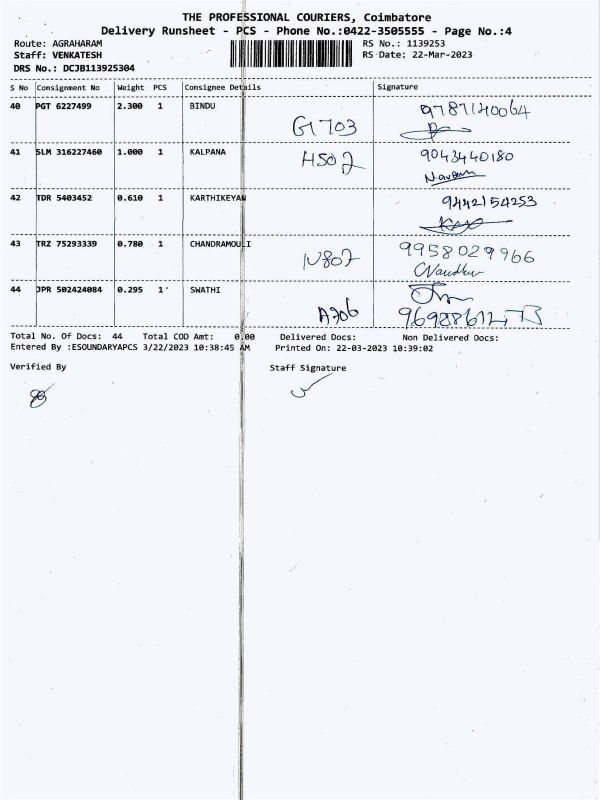 THE PROFESSIONAL COURIERS, Coimbatore
Delivery Runsheet - PCS - Phone No.:0422-3505555 - Page No.:4
Route: AGRAHARAM RS No.: 1139253
Staff: VENKATESH RS Date: 22-Mar-2023
DRS No.: DCJB113925304
S No Consignment No Weight PCS Consignee Details Signature
40 PGT 6227499 2.300 1 BINDU G1703 9787140064
41 SLM 316227460 1.000 1 KALPANA H502 9043440180
Naveen
42 TDR 5403452 0.610 1 KARTHIKEYAN 9442154253
43 TRZ 75293339 0.780 1 CHANDRAMOULI N802 9958029966
44 JPR 502424084 0.295 1 SWATHI A706
Total No. Of Docs: 44 Total COD Amt: 0.00 Delivered Docs: Non Delivered Docs:
Entered By :ESOUNDARYAPCS 3/22/2023 10:38:45 AM Printed On: 22-03-2023 10:39:02
Verified By Staff Signature